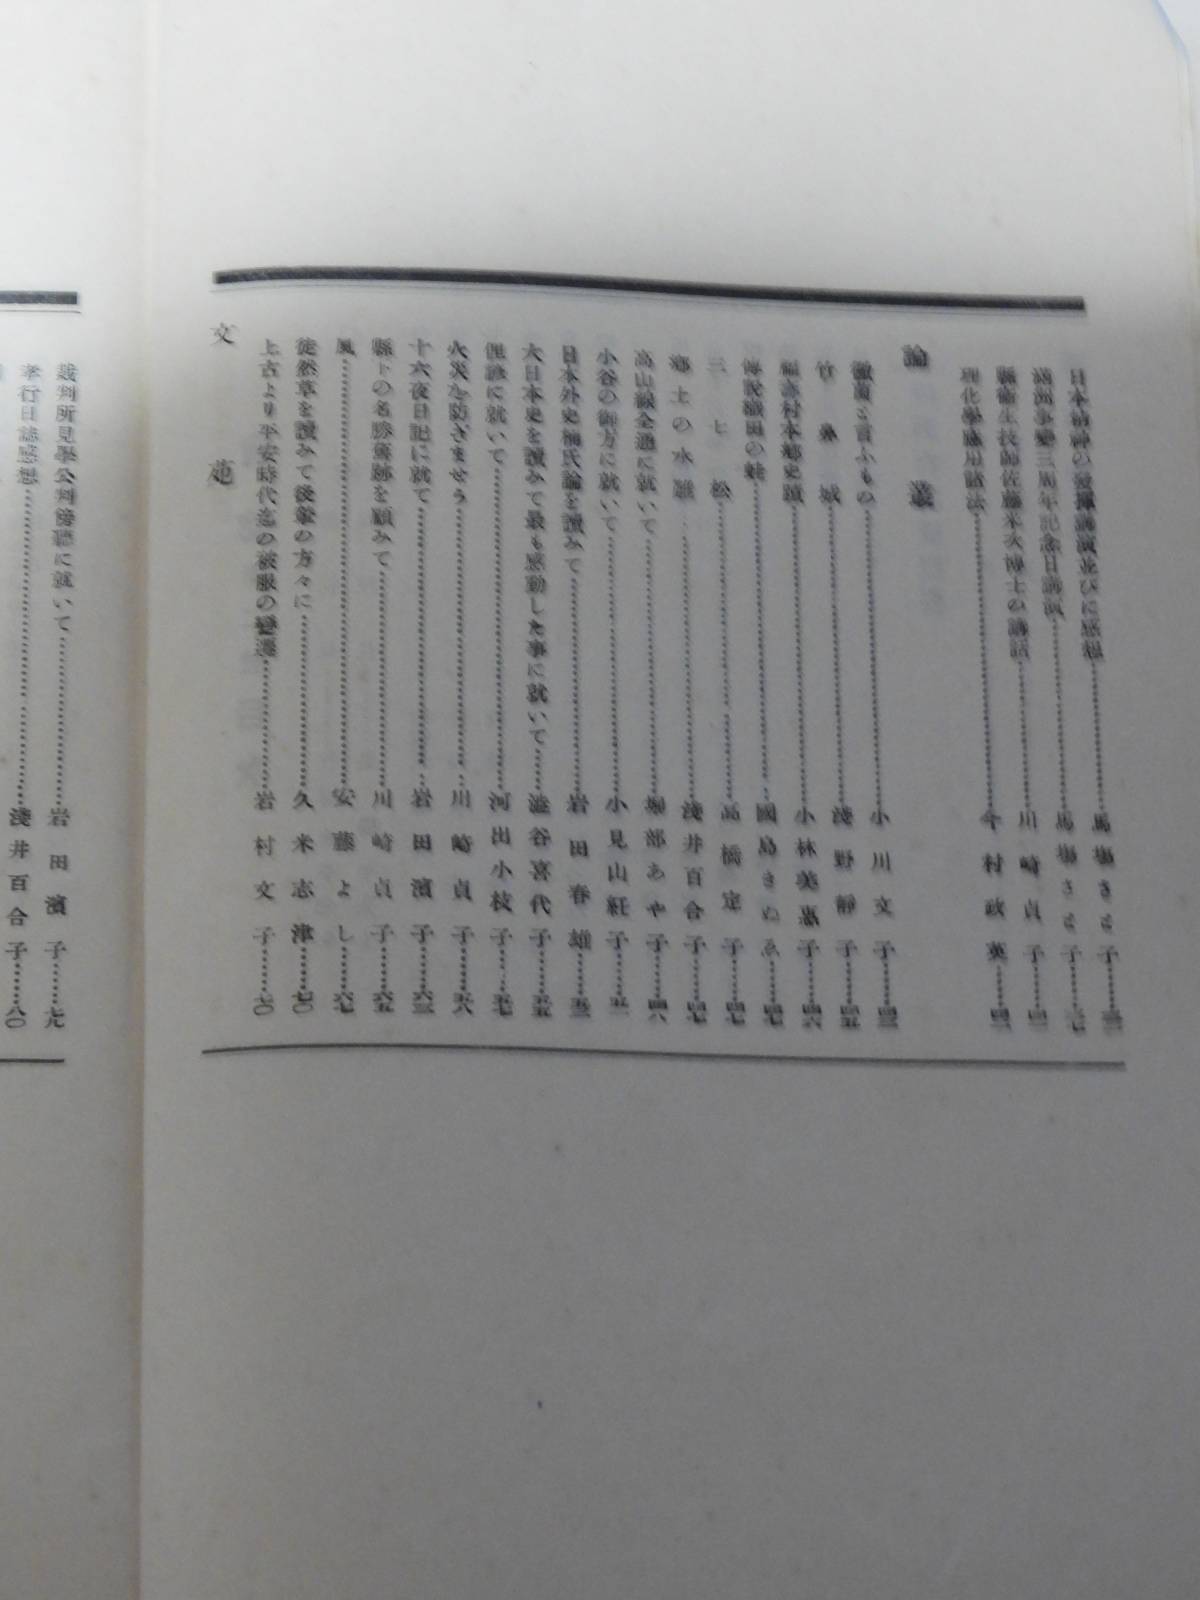 日本精神の發揮講演並びに感想……馬場さと子……
滿洲事變三周年記念日講演……馬場さと子……
縣衞生技師佐藤米次博士の講話……川崎貞子……四二
理化學應用諸法……今村政英……四二
論叢
黴菌と言ふもの……小川文子……四三
竹鼻城……淺野靜子……四五
福壽村本鄕史蹟……小林美惠子……四六
傳說織田の蛙……國島きぬゑ……四七
三七松……高橋定子……四七
鄕土の水難……淺井百合子……四七
高山線全通に就いて……堀部あや子……四八
小谷の御方に就いて……小見山紅子……五一
日本外史楠氏論を讀みて……岩田春雄……五三
大日本史を讀みて最も感動した事に就いて……澁谷喜代子……五五
俚諺に就いて……河出小枝子……五七
火災を防ぎませう……川崎貞子……五八
十六夜日記に就て……岩田濱子……六三
縣下の名勝舊跡を顧みて……川崎貞子……六五
風……安藤よし……六七
徒然草を讀みて後輩の方々に……久米志津……七〇
上古より平安時代迄の被服の變遷……岩村文子……七〇
文苑
裁判所見學公判傍聽に就いて……岩田濱子……七九
孝行日誌感想……淺井百合子……八〇